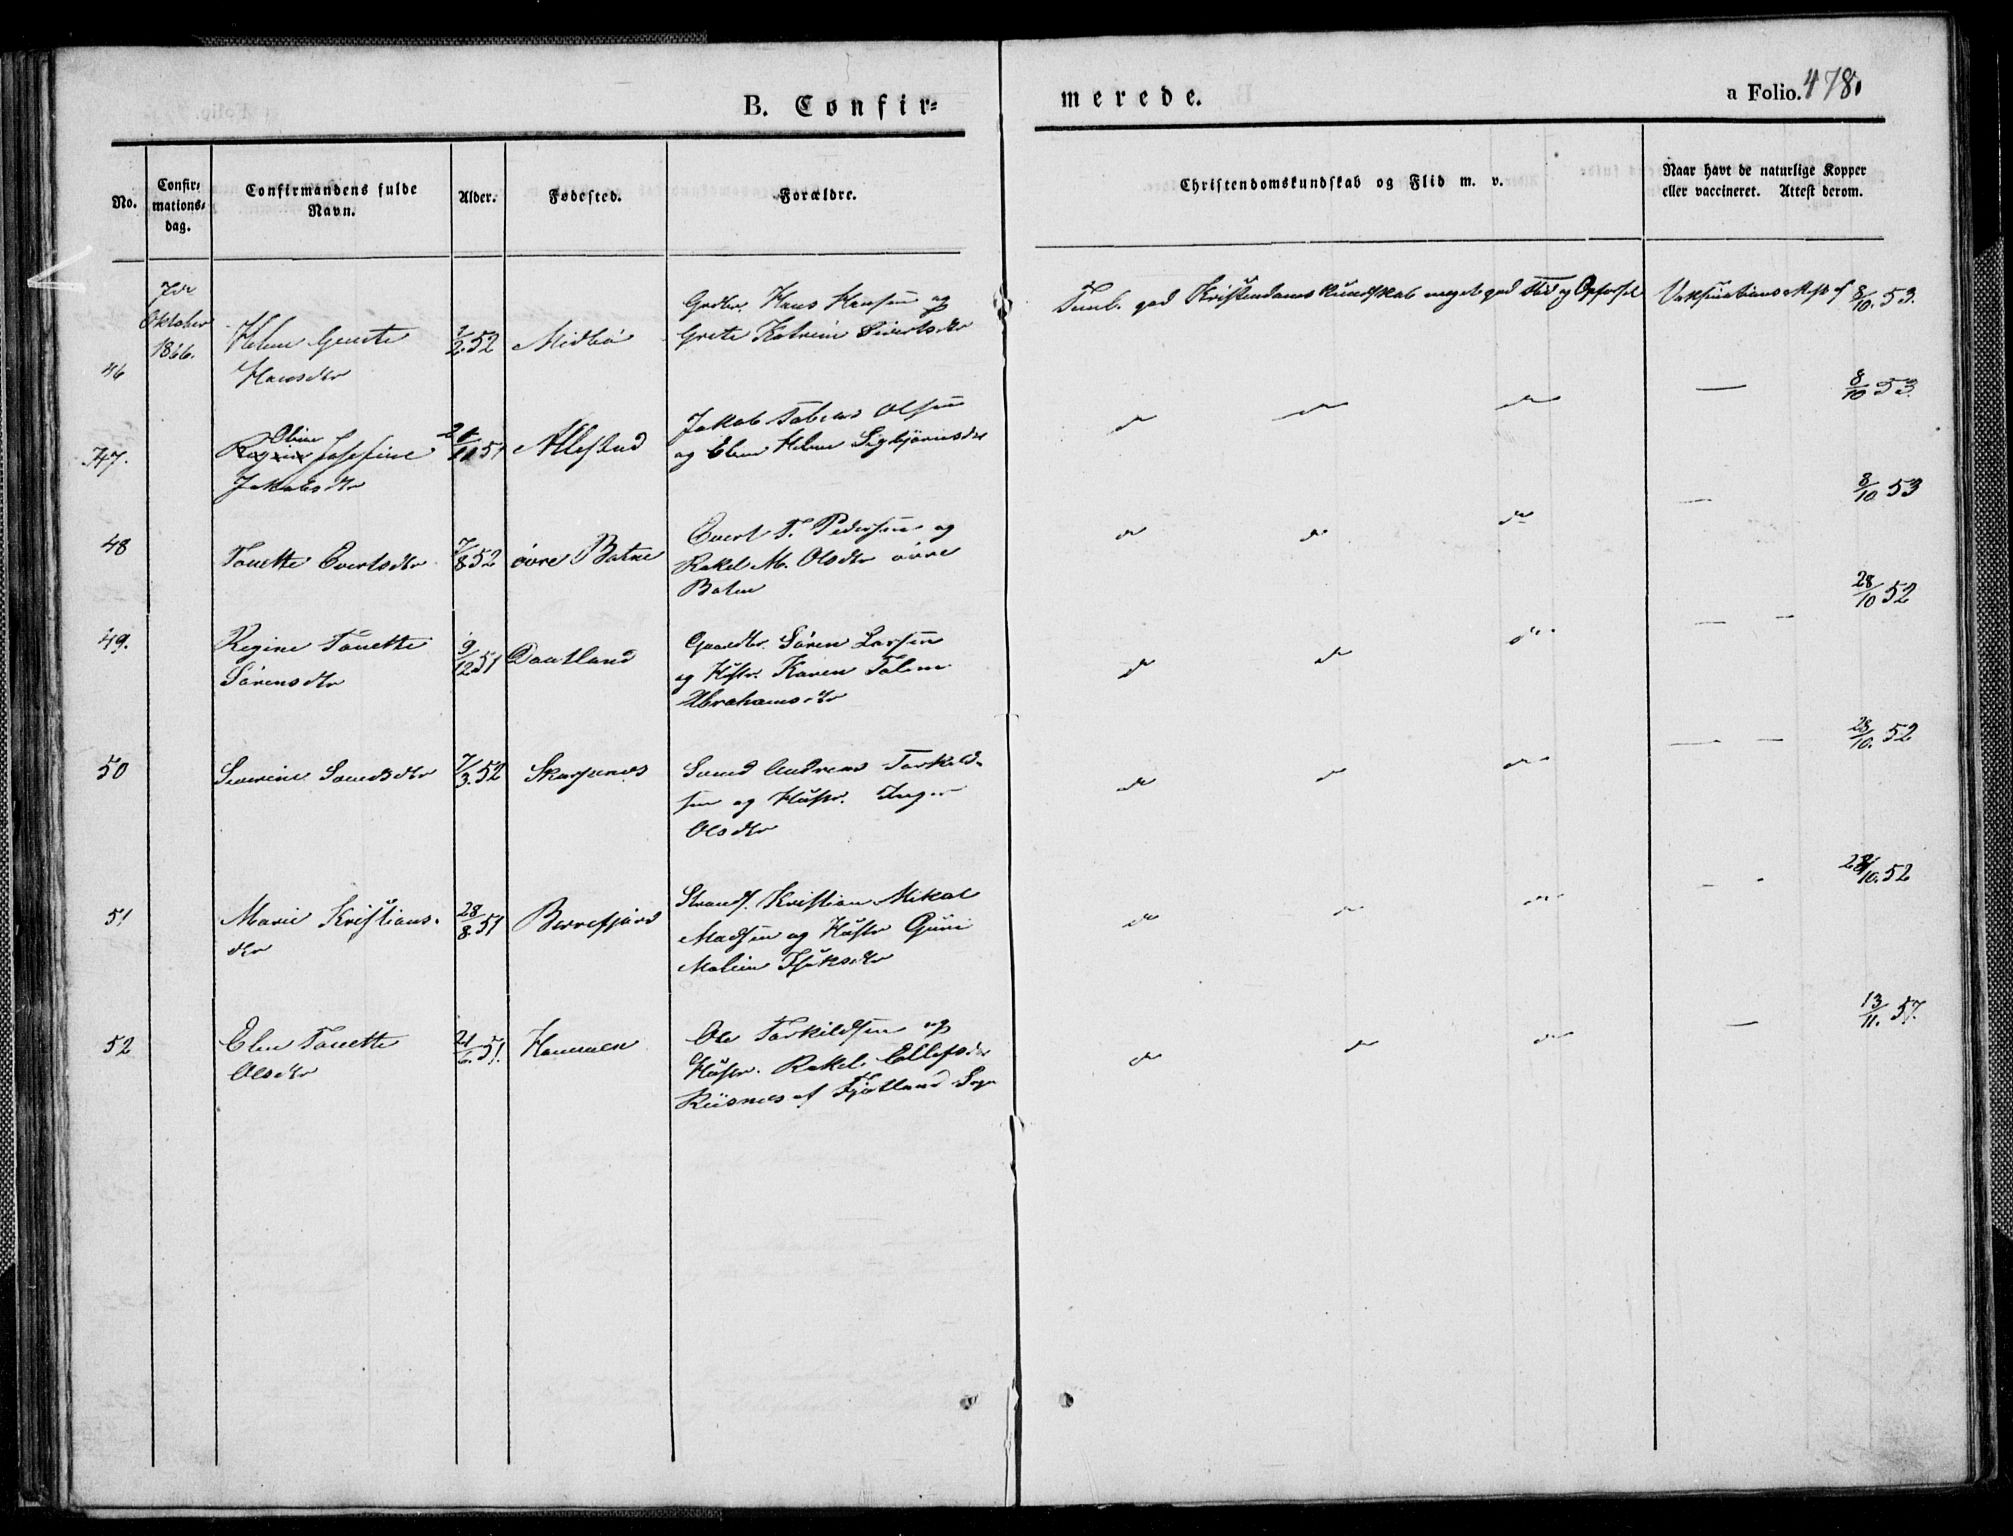 B. Confir-
merede.
a Folio. 478.
No.
Confir-
mations-
dag.
Confirmandens fulde
Navn.
Alder.
Fødested.
Forældre.
Christendomskundskab og Flid m. v.
Naar havt de naturlige Kopper
eller vaccineret. Attest derom.
7de
Oktober
1866.
46
Helene
Hansdtr
2/2 52
Midbö
Grdbr. Hans Hansen og
Grete Katrine Sivertsdtr
Teml. god Kristendomskundskab meget god Flid og Opførsel
Vaksinations Att. af 8/10. 53.
47.
Oline
Regine Josefine
Jakobsdtr
11 51
Allestad
Jakob Tobias Olsen
og Elen Helene Sigbjörnsdtr
do do do
— 8/10 53
48
Tonette Evertsdtr
7/8 52
övre Batne
Evert T. Pedersen og
Rakel M. Olsdtr övre
Batne
do do do
— 8/10 53
49.
Regine Tonette
Sörensdtr
9/12 51
Dautland
Gaardbr. Sören Larsen
og Hustr. Karen Tolene
Abrahamsdtr
do do do
— — 28/10 52
50
Severine Svendsdtr
7/3. 52
Skarpenes
Svend Andreas Torkild-
sen og Hustr. Inger
Olsdtr
do do do
— — 28/10. 52
51
Marie Kristians-
dtr
28/8. 51
Berrefjord
Strands. Kristian Mikal
Madsen og Hustr Guri
Malene Isaksdtr
do do do
— - 28/10. 52
52
Elen Tonette
Olsdtr
21/6. 51.
Hammen
Ole Torkildsen og
Hustr. Rakel Ellefsdtr
Risnes af Fjotland Sogn
do do do
— 13/11. 57.